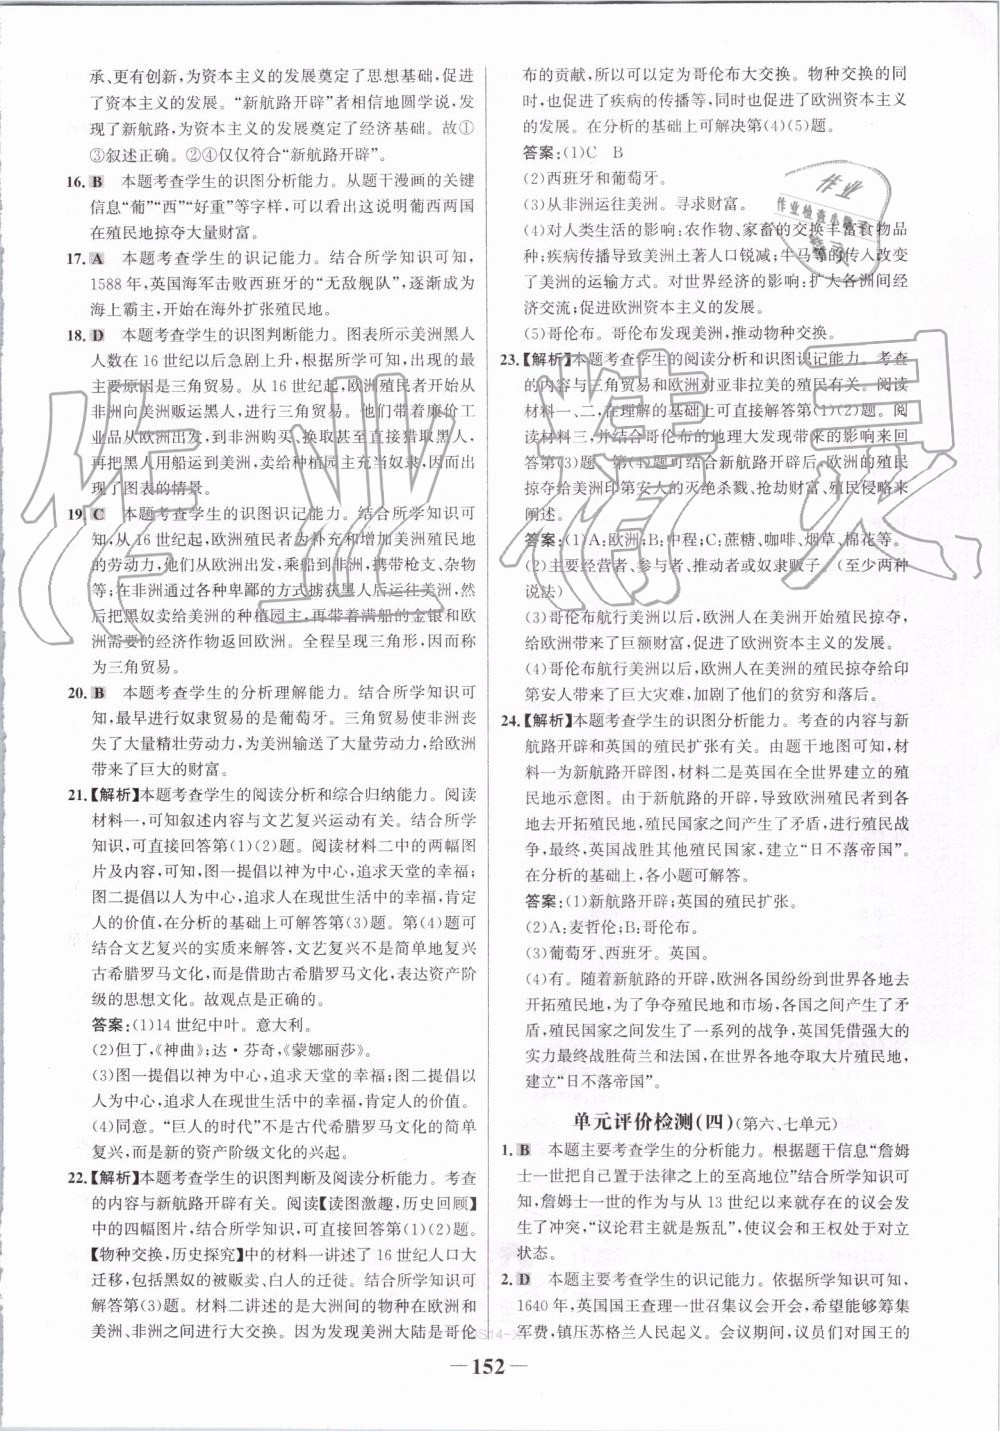 承、更有创新,为资本主义的发展奠定了思想基础,促进
了资本主义的发展。“新航路开辟”者相信地圆学说,发
现了新航路,为资本主义的发展奠定了经济基础。故①
③叙述正确。②④仅仅符合“新航路开辟”。
16. B 本题考查学生的识图分析能力。从题干漫画的关键
信息“葡”“西”“好重”等字样,可以看出这说明葡西两国
在殖民地掠夺大量财富。
17. A 本题考查学生的识记能力。结合所学知识可知,
1588年,英国海军击败西班牙的“无敌舰队”,逐渐成为
海上霸主,开始在海外扩张殖民地。
18. D 本题考查学生的识图判断能力。图表所示美洲黑人
人数在16世纪以后急剧上升,根据所学可知,出现的最
主要原因是三角贸易。从16世纪起,欧洲殖民者开始从
非洲向美洲贩运黑人,进行三角贸易。他们带着廉价工
业品从欧洲出发,到非洲购买、换取甚至亲自猎取黑人,
再把黑人用船运到美洲,卖给种植园主充当奴隶,因而出
现了图表的情景。
19. C 本题考查学生的识图识记能力。结合所学知识可
知,从16世纪起,欧洲殖民者为补充和增加美洲殖民地
的劳动力,他们从欧洲出发,乘船到非洲,携带枪支、杂物
等,在非洲通过各种卑鄙的方式掳获黑人后运往美洲,然
后把黑奴卖给美洲的种植园主,再带着满船的金银和欧
洲需要的经济作物返回欧洲。全程呈现三角形,因而称
为三角贸易。
20. B 本题考查学生的分析理解能力。结合所学知识可
知,最早进行奴隶贸易的是葡萄牙。三角贸易使非洲丧
失了大量精壮劳动力,为美洲输送了大量劳动力,给欧洲
带来了巨大的财富。
21.【解析】本题考查学生的阅读分析和综合归纳能力。阅读
材料一,可知叙述内容与文艺复兴运动有关。结合所学
知识,可直接回答第(1)(2)题。阅读材料二中的两幅图
片及内容,可知,图一提倡以神为中心,追求天堂的幸福;
图二提倡以人为中心,追求人在现世生活中的幸福,肯定
人的价值,在分析的基础上可解答第(3)题。第(4)题可
结合文艺复兴的实质来解答,文艺复兴不是简单地复兴
古希腊罗马文化,而是借助古希腊罗马文化,表达资产阶
级的思想文化。故观点是正确的。
答案:(1)14世纪中叶。意大利。
(2)但丁,《神曲》;达·芬奇,《蒙娜丽莎》。
(3)图一提倡以神为中心,追求天堂的幸福;图二提倡以
人为中心,追求人在现世生活中的幸福,肯定人的价值。
(4)同意。“巨人的时代”不是古代希腊罗马文化的简单
恢复,而是新的资产阶级文化的兴起。
22.【解析】本题考查学生的识图判断及阅读分析能力。考查
的内容与新航路开辟有关。阅读【读图激趣,历史回顾】
中的四幅图片,结合所学知识,可直接回答第(1)(2)题。
【物种交换,历史探究】中的材料一讲述了16世纪人口大
迁移,包括黑奴的被贩卖、白人的迁徙。结合所学知识可
解答第(3)题。材料二讲述的是大洲间的物种在欧洲和
美洲、非洲之间进行大交换。因为发现美洲大陆是哥伦
布的贡献,所以可以定为哥伦布大交换。物种交换的同
时,也促进了疾病的传播等,同时也促进了欧洲资本主义
的发展。在分析的基础上可解决第(4)(5)题。
答案:(1)C B
(2)西班牙和葡萄牙。
(3)从非洲运往美洲。寻求财富。
(4)对人类生活的影响:农作物、家畜的交换丰富食物品
种;疾病传播导致美洲土著人口锐减;牛马等的传入改变
了美洲的运输方式。对世界经济的影响:扩大各洲间经
济交流;促进欧洲资本主义的发展。
(5)哥伦布。哥伦布发现美洲,推动物种交换。
23.【解析】本题考查学生的阅读分析和识图识记能力。考查
的内容与三角贸易和欧洲对亚非拉美的殖民有关。阅读
材料一、二,在理解的基础上可直接解答第(1)(2)题。阅
读材料三,并结合哥伦布的地理大发现带来的影响来回
答第(3)题。第(4)题可结合新航路开辟后,欧洲的殖民
掠夺给美洲印第安人的灭绝杀戮、抢劫财富、殖民侵略来
阐述。
答案:(1)A:欧洲;B:中程;C:蔗糖、咖啡、烟草、棉花等。
(2)主要经营者、参与者、推动者或奴隶贩子。(至少两种
说法)
(3)哥伦布航行美洲以后,欧洲人在美洲开始殖民掠夺,
给欧洲带来了巨额财富,促进了欧洲资本主义的发展。
(4)哥伦布航行美洲以后,欧洲人在美洲的殖民掠夺给印
第安人带来了巨大灾难,加剧了他们的贫穷和落后。
24.【解析】本题考查学生的识图分析能力。考查的内容与新
航路开辟和英国的殖民扩张有关。由题干地图可知,材
料一为新航路开辟图,材料二是英国在全世界建立的殖
民地示意图。由于新航路的开辟,导致欧洲殖民者到各
地去开拓殖民地,殖民国家之间产生了矛盾,进行殖民战
争,最终,英国战胜其他殖民国家,建立“日不落帝国”。
在分析的基础上,各小题可解答。
答案:(1)新航路开辟;英国的殖民扩张。
(2)A:麦哲伦;B:哥伦布。
(3)葡萄牙、西班牙。英国。
(4)有。随着新航路的开辟,欧洲各国纷纷到世界各地去
开拓殖民地,为了争夺殖民地和市场,各国之间产生了矛
盾,殖民国家之间发生了一系列的战争,英国凭借强大的
实力最终战胜荷兰和法国,在世界各地夺取大片殖民地,
建立“日不落帝国”。
单元评价检测(四)(第六、七单元)
1. B 本题主要考查学生的分析能力。根据题干信息“詹姆
士一世把自己置于法律之上的至高地位”结合所学知识可
知,詹姆士一世的作为与从13世纪以来就存在的议会发
生了冲突,“议论君主就是叛乱”,使议会和王权处于对立
状态。
2. D 本题主要考查学生的识记能力。依据所学知识可知,
1640年,英国国王查理一世召集议会开会,希望能够筹集
军费,镇压苏格兰人民起义。会议期间,议员们对国王的
— 152 —
作业
作业检查小助手
作业精灵